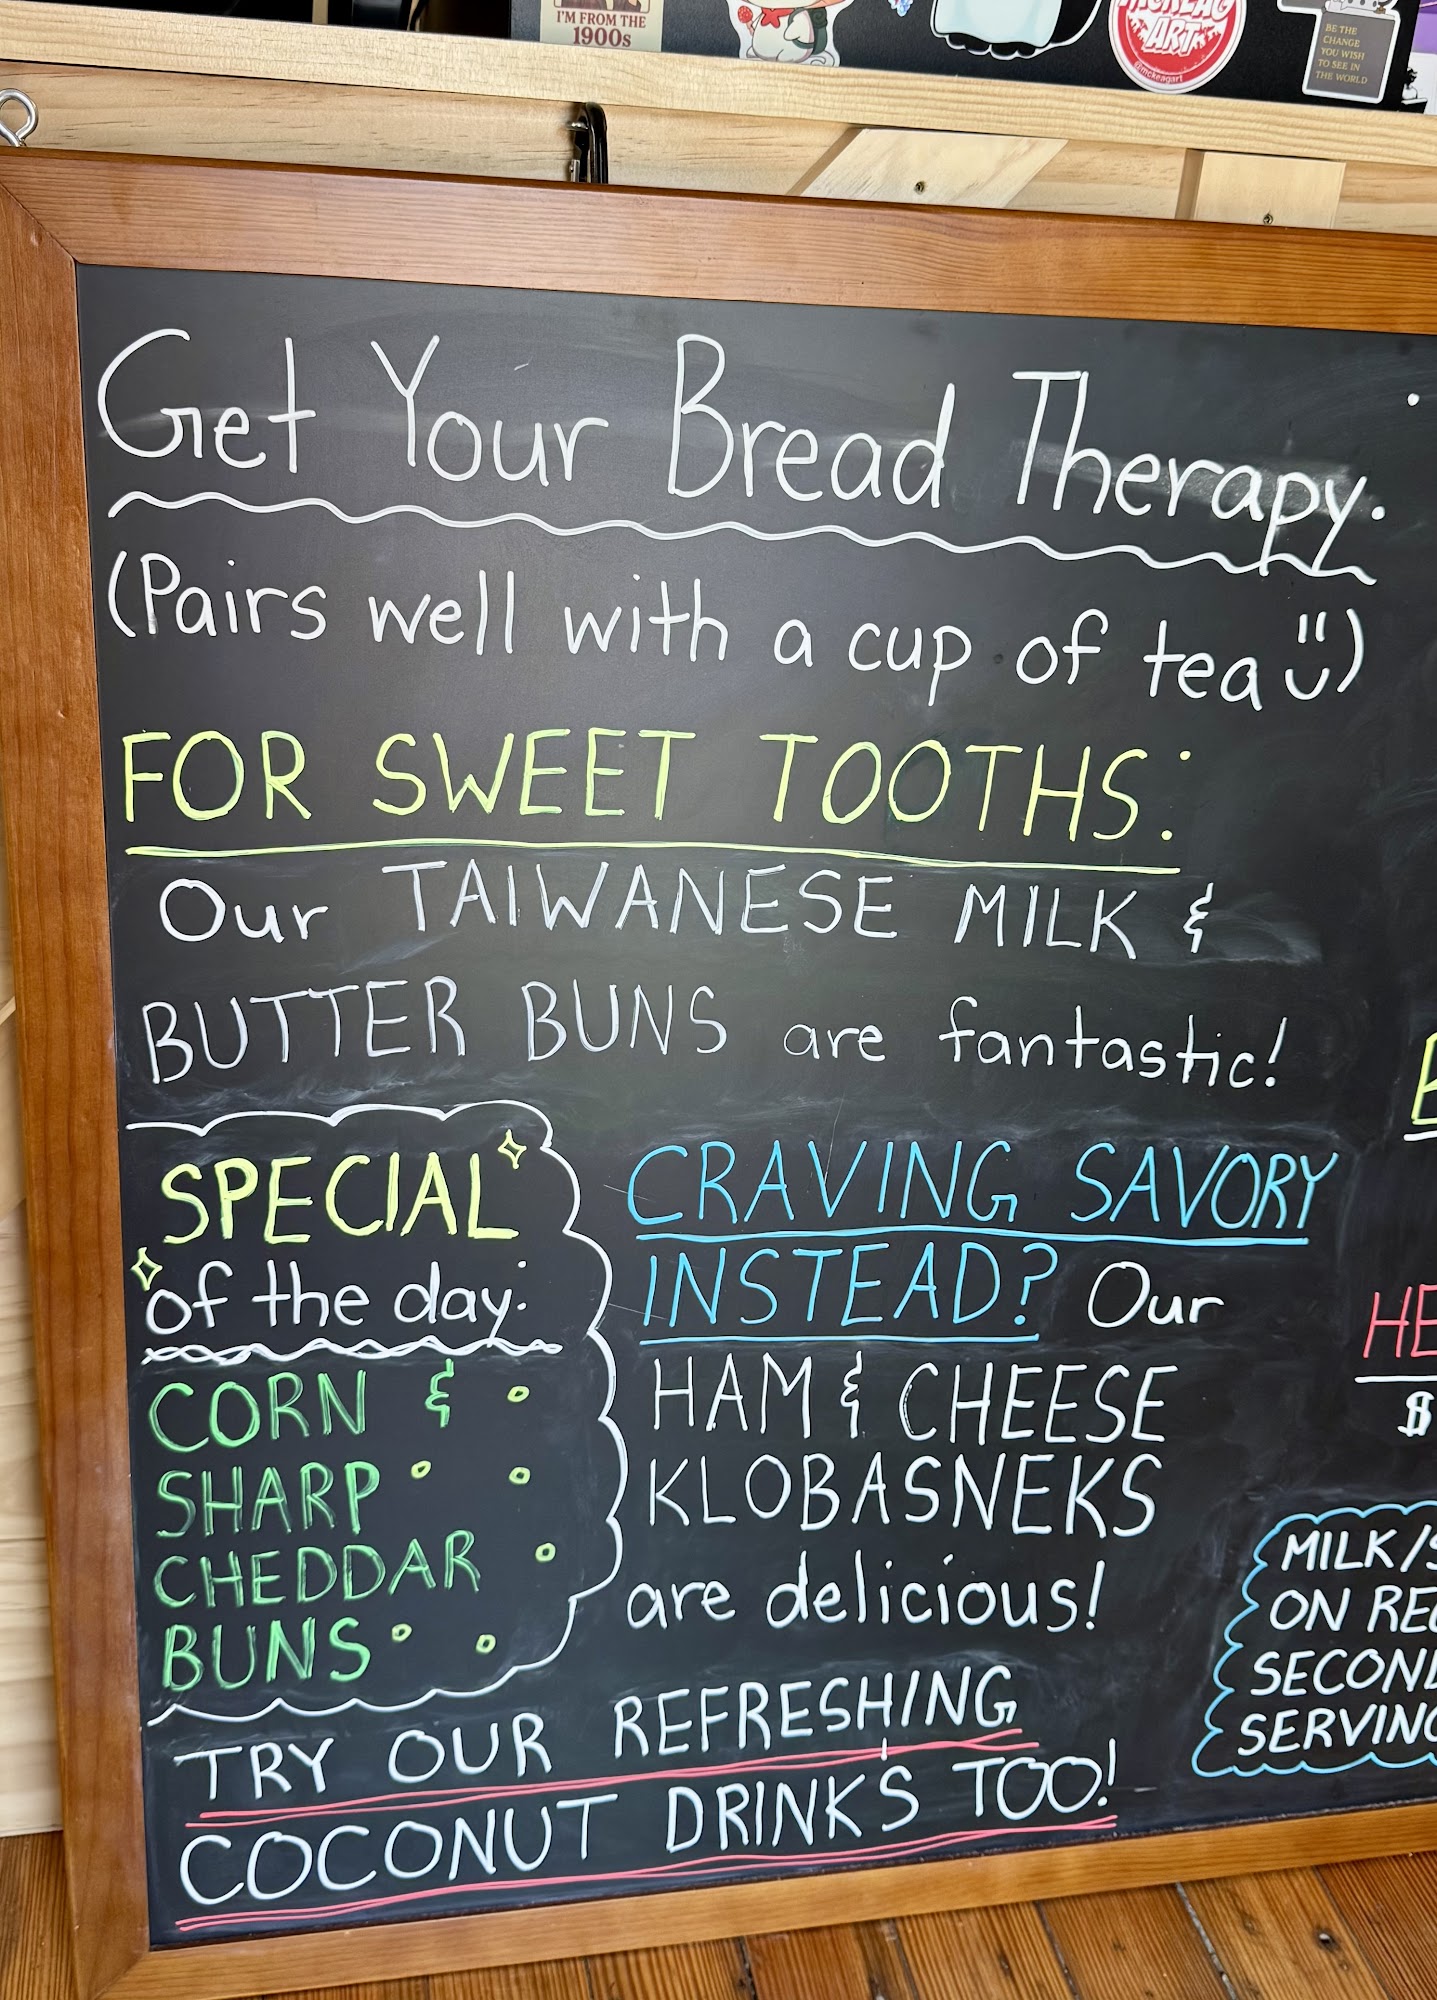 I'M FROM THE
1900s
ART
@mckeagart
BE THE
CHANGE
YOU WISH
TO SEE IN
THE WORLD
Get Your Bread Therapy.
(Pairs well with a cup of tea)
FOR SWEET TOOTHS:
Our TAIWANESE MILK &
BUTTER BUNS are fantastic!
SPECIAL
of the day:
CORN &
SHARP
CHEDDAR
BUNS
CRAVING SAVORY
INSTEAD? Our
HAM & CHEESE
KLOBASNEKS
are delicious!
TRY OUR REFRESHING
COCONUT DRINKS TOO!
HE
$
MILK/
ON
SECOND
SERVING